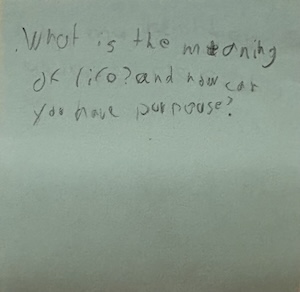 What is the meaning
of life? and how can
you have purpouse?